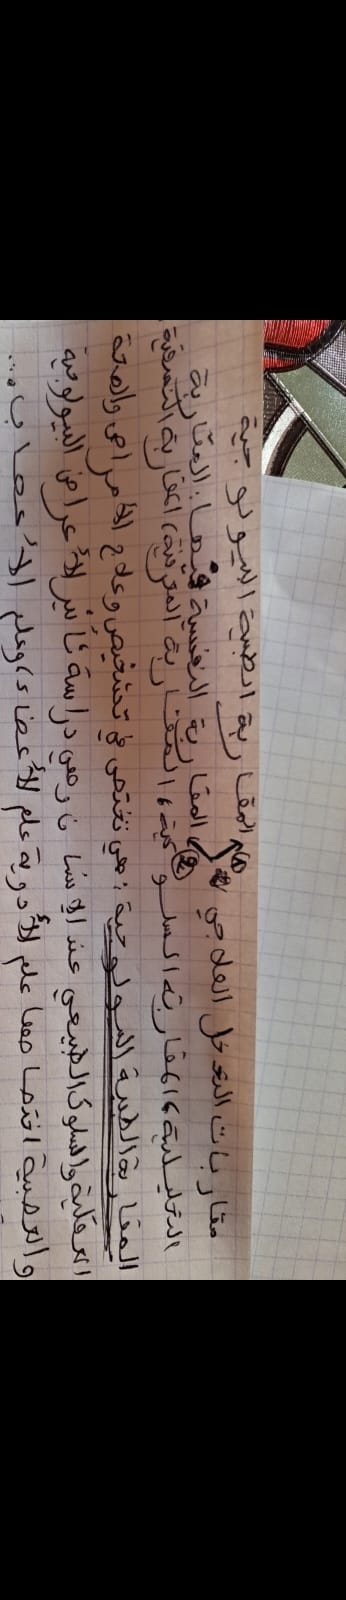 المقاربة الطبية البيولوجية
مقاربات التدخل العلاجي
المقاربة النفسية فيها: المقاربة
التحليلية، المقاربة السلوكية، المقاربة المعرفية، المقاربة النسقية.
المقاربة الطبية البيولوجية: هي تختص في تشخيص وعلاج الأمراض والصحة
العقلية والسلوك الطبيعي عند الإنسان وهي دراسة تأثير الأعراض البيولوجية
والعصبية اختصاصها علم الأدوية علم الأعضاء، وعلم الأعصاب...